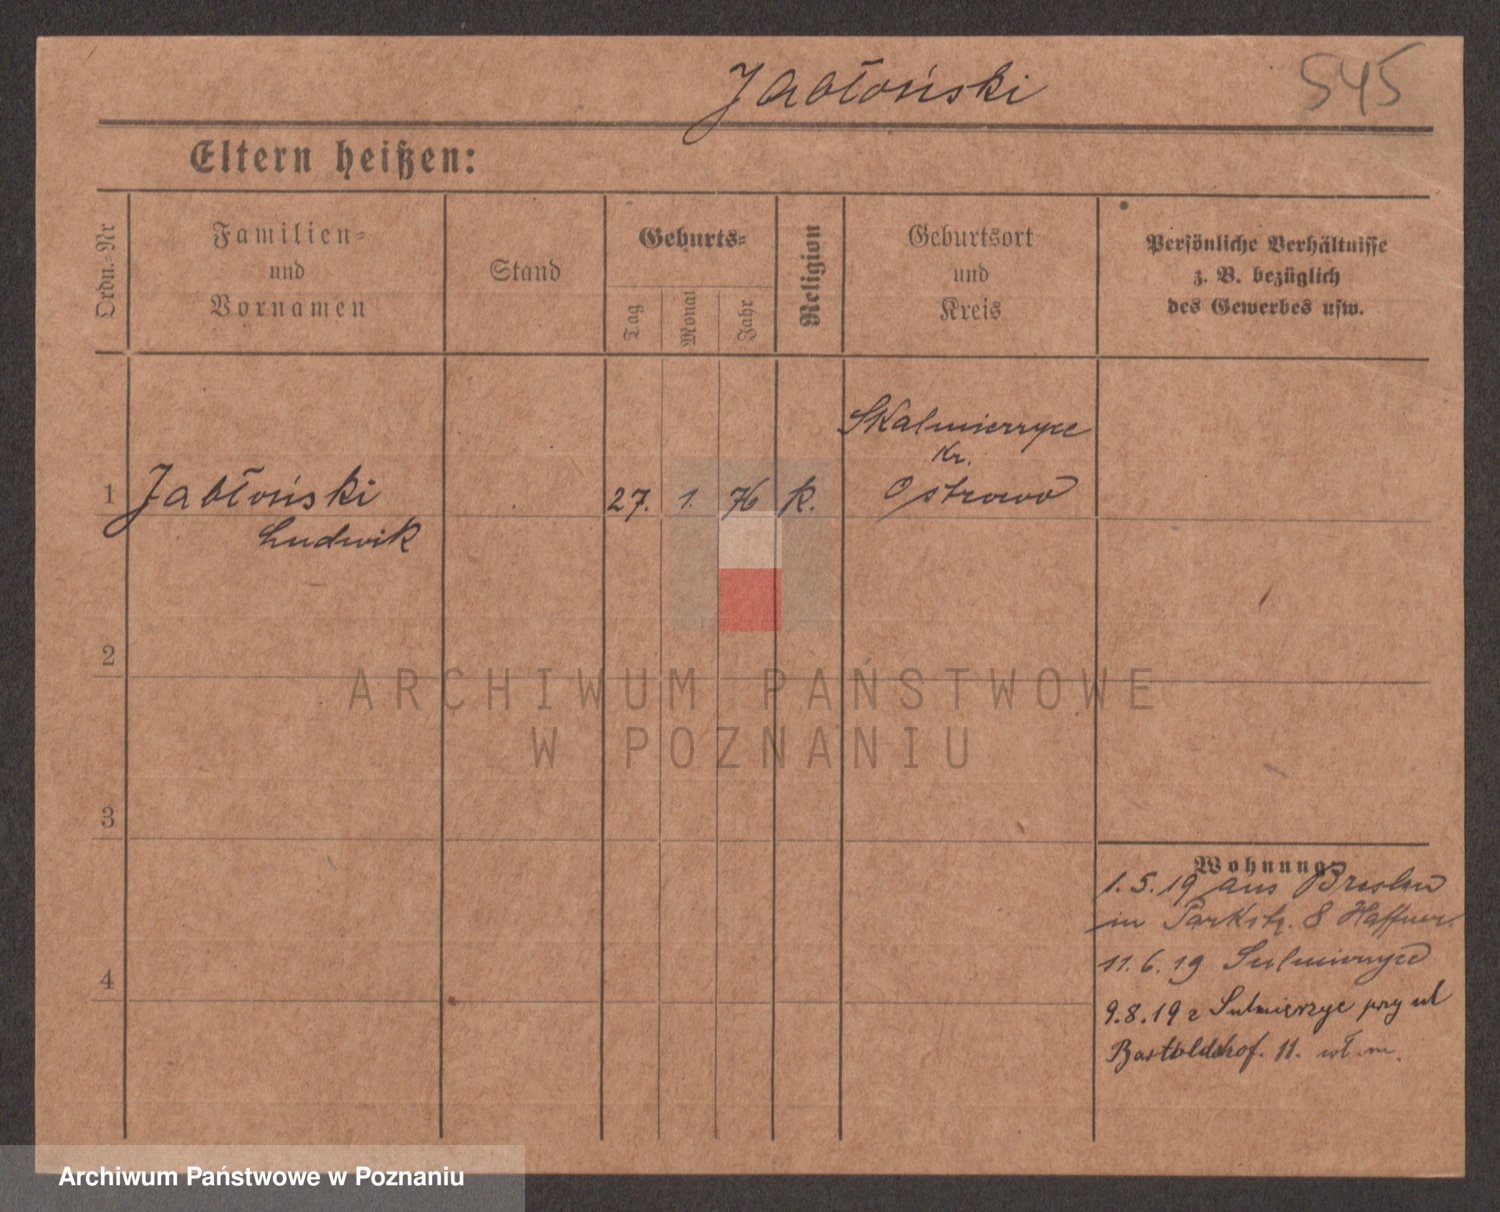 Jabłoński
545
Eltern heißen:
Ordn.=Nr
Familien=
und
Vornamen
Stand
Geburts=
Tag
Monat
Jahr
Religion
Geburtsort
und
Kreis
Persönliche Verhältnisse
z. B. bezüglich
des Gewerbes usw.
1
Jabłoński
Ludwik
27. 1. 76 k.
Skalmierzyce
Kr.
Ostrowo
2
3
4
Wohnung
1.5.19 aus Breslau
in Parkstr. 8 Haffner
11.6.19 Sulmierzyce
9.8.19 z Sulmierzyc przy ul
Bartoldshof. 11. wł. m.
ARCHIWUM PAŃSTWOWE
W POZNANIU
Archiwum Państwowe w Poznaniu